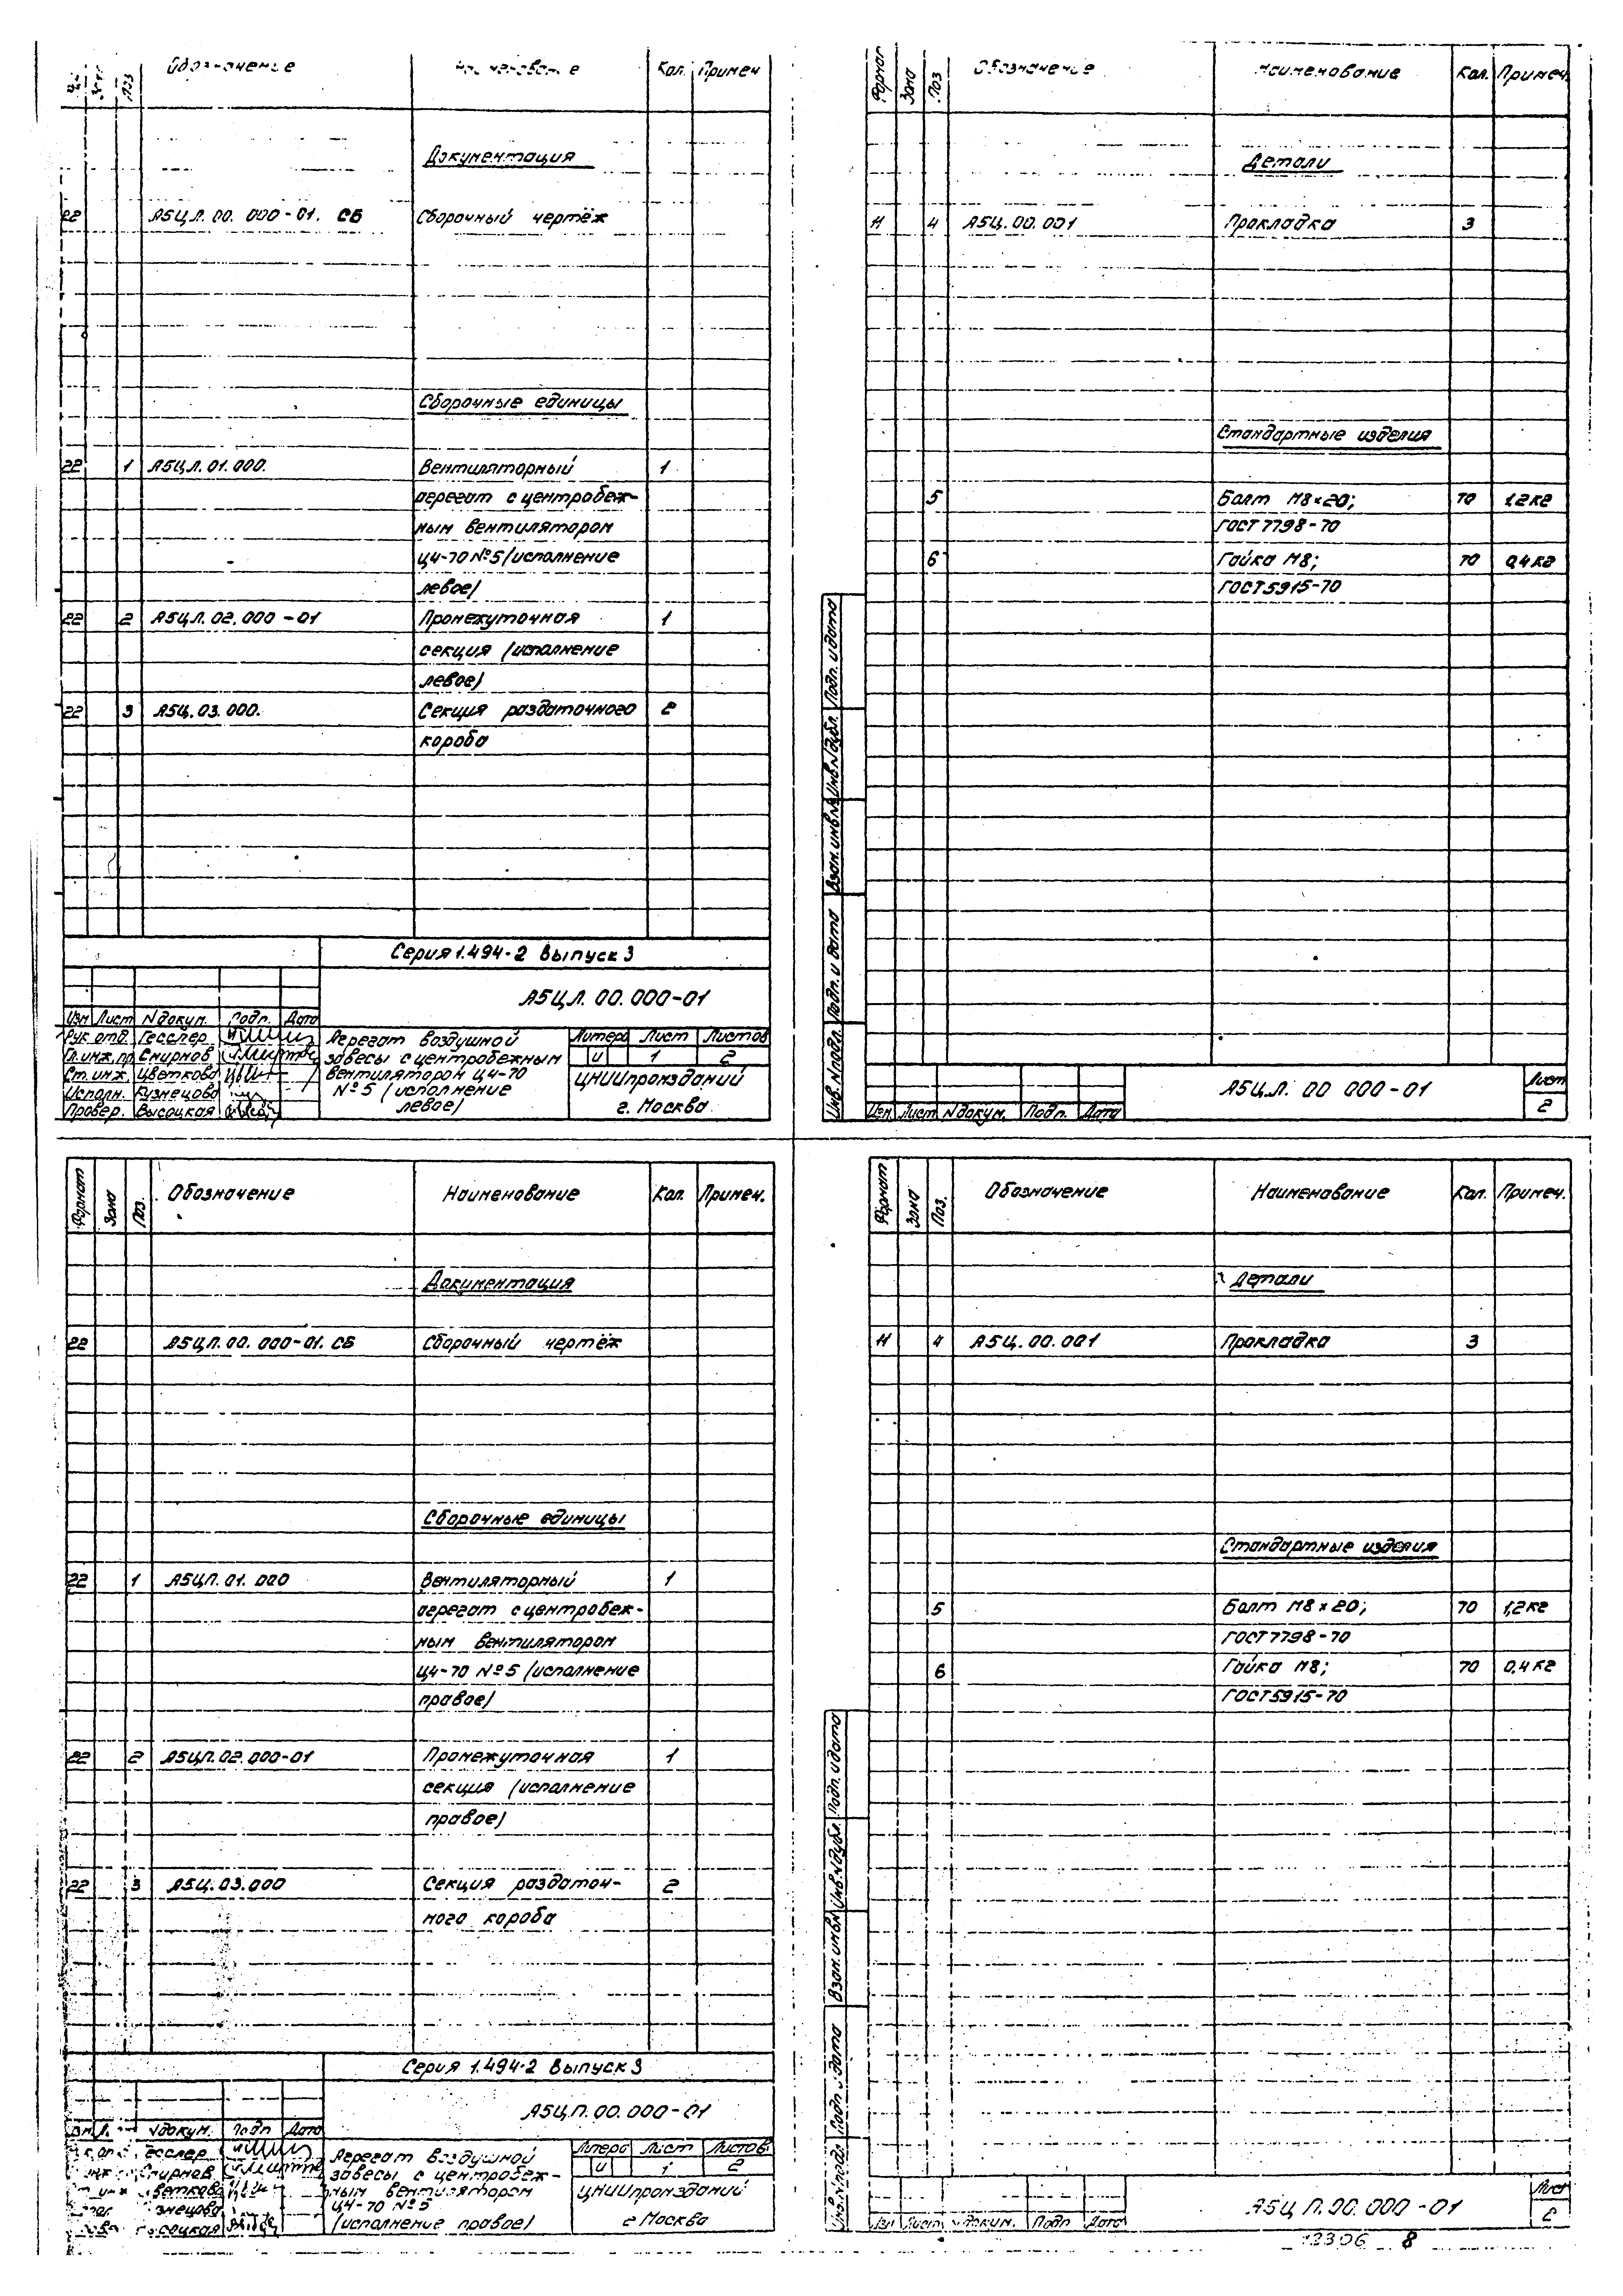 Поз Обозначение Наименование Кол. Примеч
Документация
22 А5ЦЛ.00.000-01. СБ Сборочный чертёж
Сборочные единицы
22 1 А5ЦЛ.01.000. Вентиляторный 1
агрегат с центробеж-
ным вентилятором
Ц4-70 №5 (исполнение
левое)
22 2 А5ЦЛ.02.000-01 Промежуточная 1
секция (исполнение
левое)
22 3 А5Ц.03.000. Секция раздаточного 2
короба
Серия 1.494-2 Выпуск 3
А5ЦЛ.00.000-01
Изм Лист N докум. Подп. Дата
Рук. отд. Гесслер
Гл. инж. пр. Смирнов
Ст. инж. Цветкова
Исполн. Кузнецова
Провер. Высоцкая
Агрегат воздушной
завесы с центробежным
вентилятором Ц4-70
№5 (исполнение
левое)
Литера Лист Листов
И 1 2
ЦНИИпромзданий
г. Москва
Формат Зона Поз Обозначение Наименование Кол. Примеч.
Детали
11 4 А5Ц.00.001 Прокладка 3
Стандартные изделия
5 Болт М8×20; 70 1,2кг
ГОСТ 7798-70
6 Гайка М8; 70 0,4кг
ГОСТ 5915-70
Инв. N подл. Подп. и дата Взам. инв. № Инв. N дубл. Подп. и дата
Изм Лист N докум. Подп. Дата
А5ЦЛ. 00 000-01
Лист
2
Формат Зона Поз. Обозначение Наименование Кол. Примеч.
Документация
22 А5ЦП.00.000-01. СБ Сборочный чертёж
Сборочные единицы
22 1 А5ЦП.01.000 Вентиляторный 1
агрегат с центробеж-
ным вентилятором
Ц4-70 №5 (исполнение
правое)
22 2 А5ЦП.02.000-01 Промежуточная 1
секция (исполнение
правое)
22 3 А5Ц.03.000 Секция раздаточ- 2
ного короба
Серия 1.494-2 Выпуск 3
А5ЦП.00.000-01
N докум. Подп Дата
Агрегат воздушной
завесы с центробеж-
ным вентилятором
Ц4-70 №5
(исполнение правое)
Литера Лист Листов
И 1 2
ЦНИИпромзданий
г Москва
Формат Зона Поз. Обозначение Наименование Кол. Примеч.
Детали
11 4 А5Ц.00.001 Прокладка 3
Стандартные изделия
5 Болт М8×20; 70 1,2кг
ГОСТ 7798-70
6 Гайка М8; 70 0,4кг
ГОСТ 5915-70
Инв. N подл Подп. и дата Взам. инв. N Инв. N дубл. Подп. и дата
Изм Лист N докум. Подп Дата
А5ЦП.00.000-01
Лист
2
8